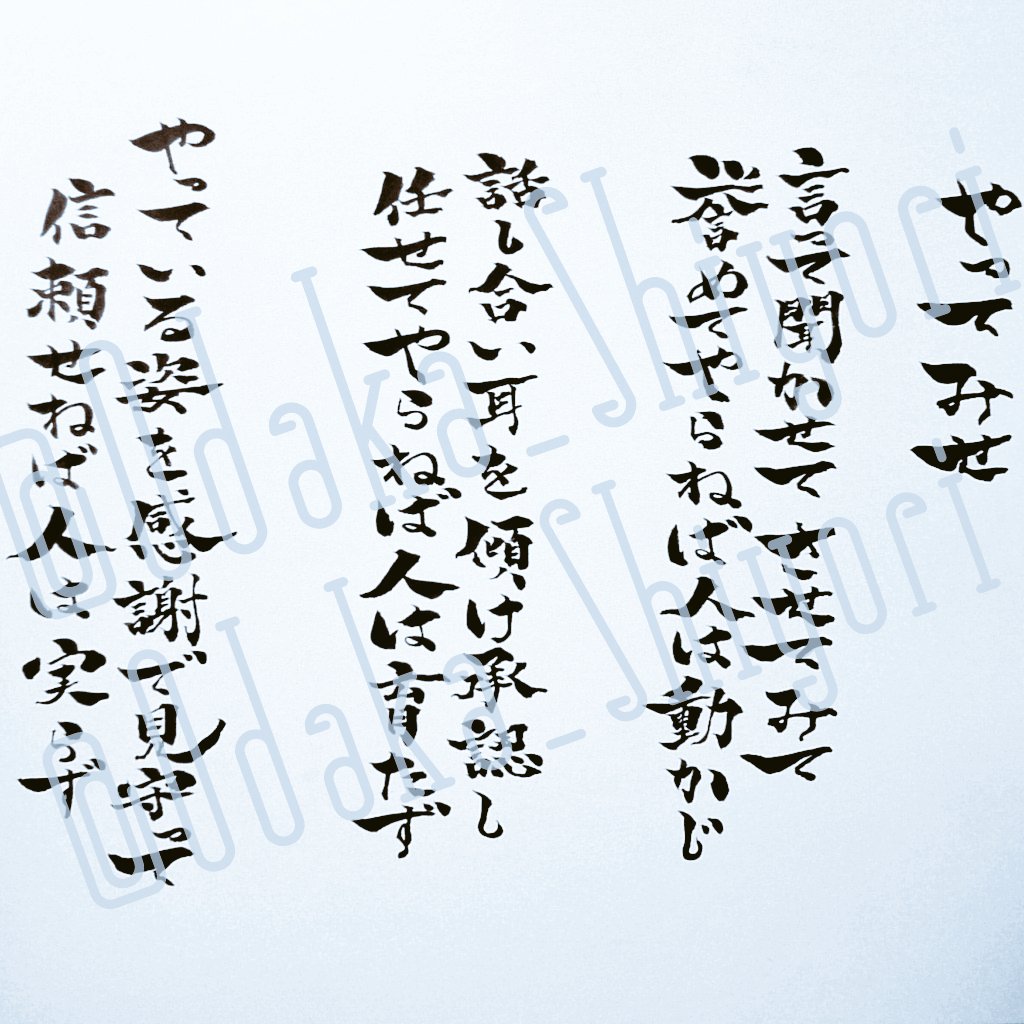 やってみせ
言って聞かせて させてみて
誉めてやらねば人は動かじ
話し合い耳を傾け承認し
任せてやらねば人は育たず
やっている姿を感謝で見守って
信頼せねば人は実らず
@Odaka_Shiyori
@Odaka_Shiyori